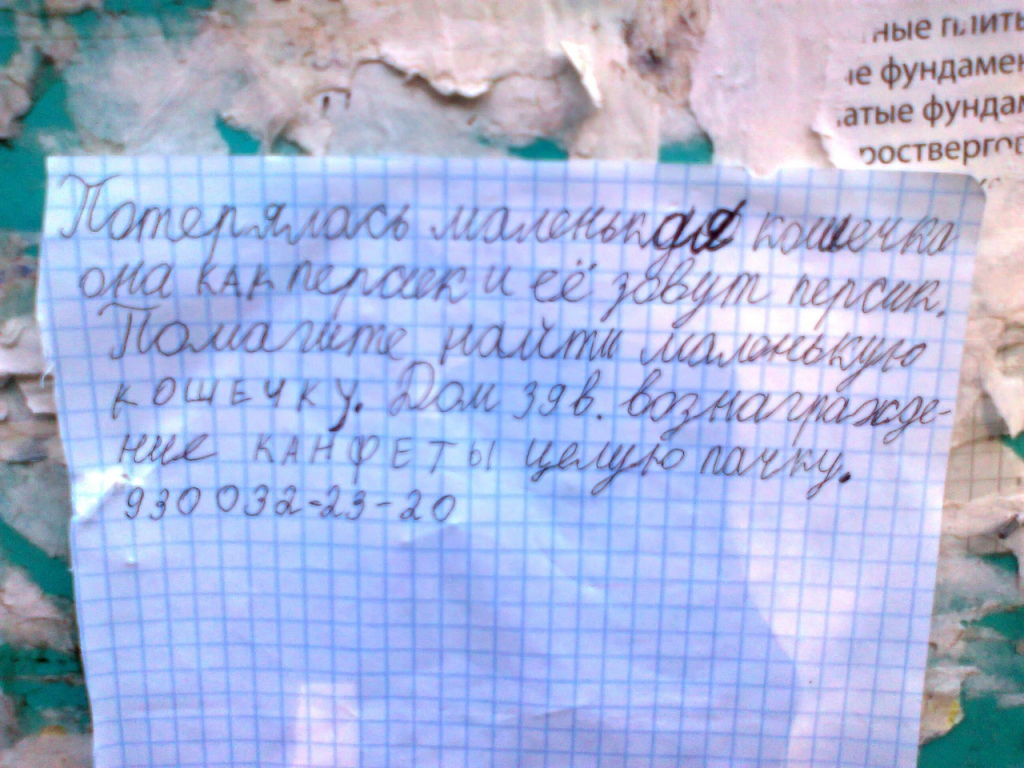 ные плиты
е фундамен
атые фундам
роствергов
Потерялась маленькая кошечка
она как персик и её зовут персик.
Помагите найти маленькую
кошечку. Дом 39в. вознагражде-
ние КАНФЕТЫ целую пачку.
930 032-23-20